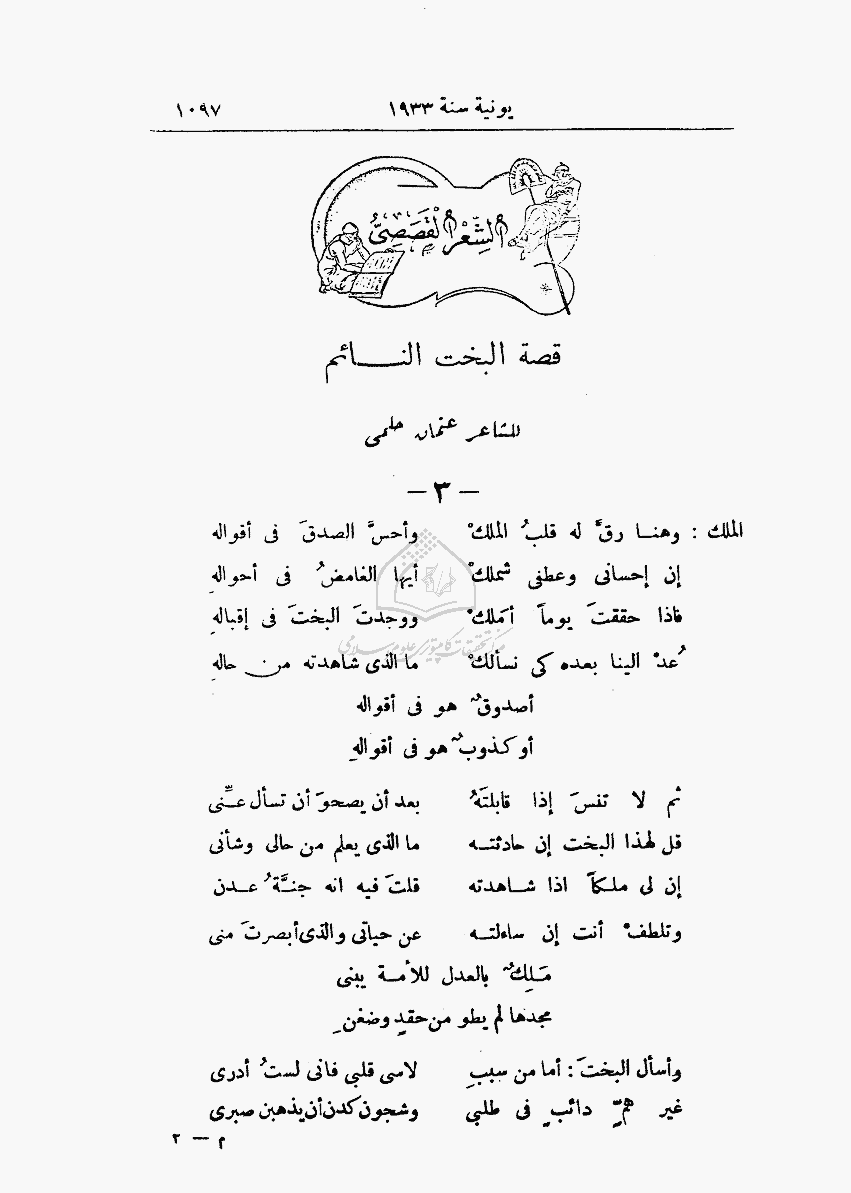 يونية سنة ١٩٣٣ ١٠٩٧
الشِّعْرُ الْقَصَصِيُّ
قصة البخت النـــائم
للشاعر عثمان حلمى
— ٣ —
الملك : وهنـا رقَّ له قلبُ الملكْ وأحسَّ الصدقَ فى أقواله
إن إحسانى وعطفى شملكْ أيها الغامضُ فى أحوالهِ
فاذا حققتَ يوماً أمَلكْ ووجدتَ البختَ فى إقبالهِ
عُدْ الينا بعده كى نسألكْ ما الذى شاهدته من حالهِ
أصدوقٌ هو فى أقواله
أو كذوبٌ هو فى أقوالهِ
ثم لا تنسَ إذا قابلتَهُ بعد أن يصحوَ أن تسأل عنِّى
قل لهذا البخت إن حادثتـه ما الذى يعلم من حالى وشأنى
إن لى ملكاً اذا شـاهدته قلتَ فيه انه جنـَّةُ عـدن
وتلطفْ أنت إن ساءلتـه عن حياتى والذى أبصرتَ منى
مَـلِكٌ بالعدل للأمـة يبنى
مجدها لم يطو من حقدٍ وضغنِ
وأسأل البختَ : أما من سببِ لاسى قلبي فانى لستُ أدرى
غير همٍّ دائبٍ فى طلبي وشجون كدن أن يذهبن صبرى
م — ٢
مركز تحقيقات كامپيوترى علوم اسلامى